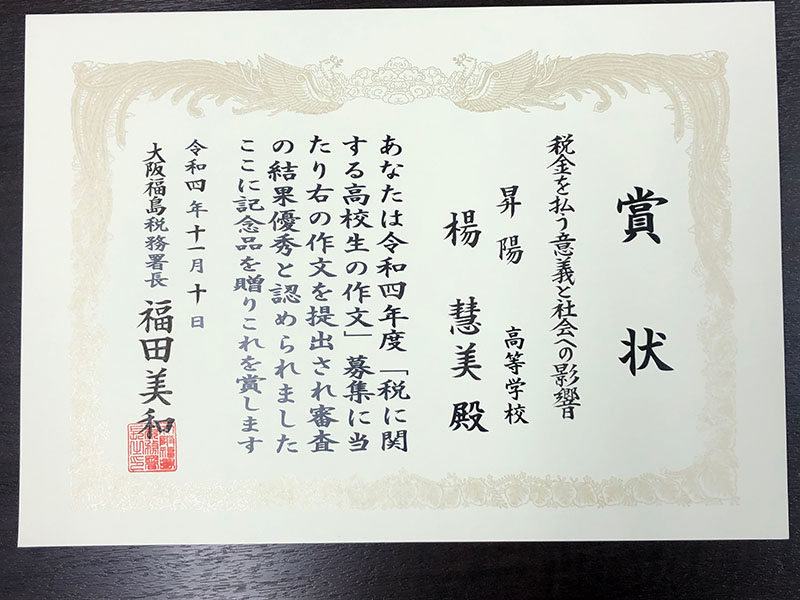 賞状
税金を払う意義と社会への影響
昇陽 高等学校
楊 慧美 殿
あなたは令和四年度「税に関
する高校生の作文」募集に当
たり右の作文を提出され審査
の結果優秀と認められました
ここに記念品を贈りこれを賞します
令和四年十一月十日
大阪福島税務署長 福田美和